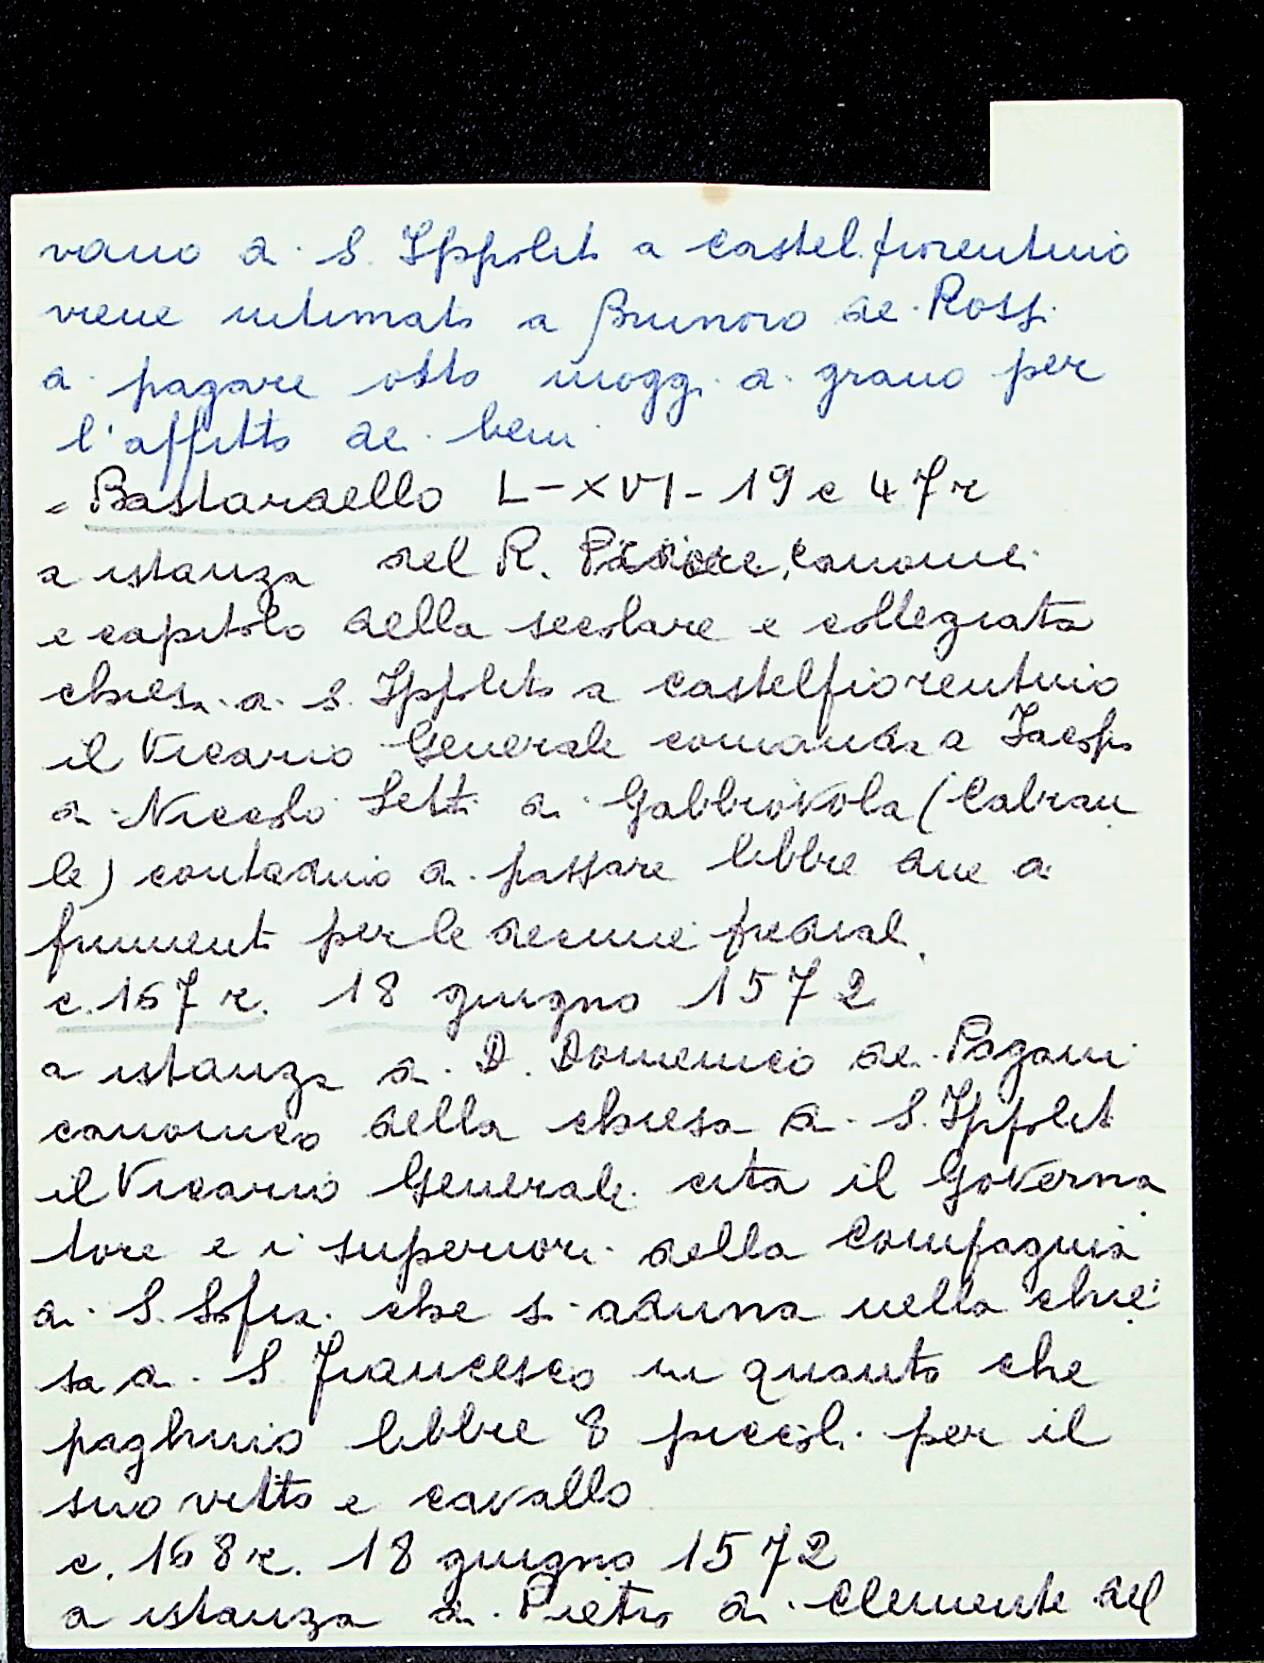 vano di S. Ippolito a Castelfiorentino
viene intimato a Brunoro de Rossi
di pagare otto moggi di grano per
l'affitto dei beni
= Bastardello L-XVI-19 c 47r
a istanza del R. Priore, canonici
e capitolo della secolare e collegiata
chiesa di S. Ippolito a Castelfiorentino
il Vicario Generale comanda a Iacopo
di Niccolò Setti di Gabbiovola (Cabrau
le) contadino di passare libbre due di
frumenti per le decime prediali
c. 167 r. 18 giugno 1572
a istanza di D. Domenico de Pagani
canonico della chiesa di S. Ippolito
il Vicario Generale cita il Governa
tore e i superiori della Compagnia
di S. Sofia che si aduna nella chie
sa di S Francesco in quanto che
paghino libbre 8 piccoli per il
suo vitto e cavallo
c. 168 r. 18 giugno 1572
a istanza di Pietro di Clemente del